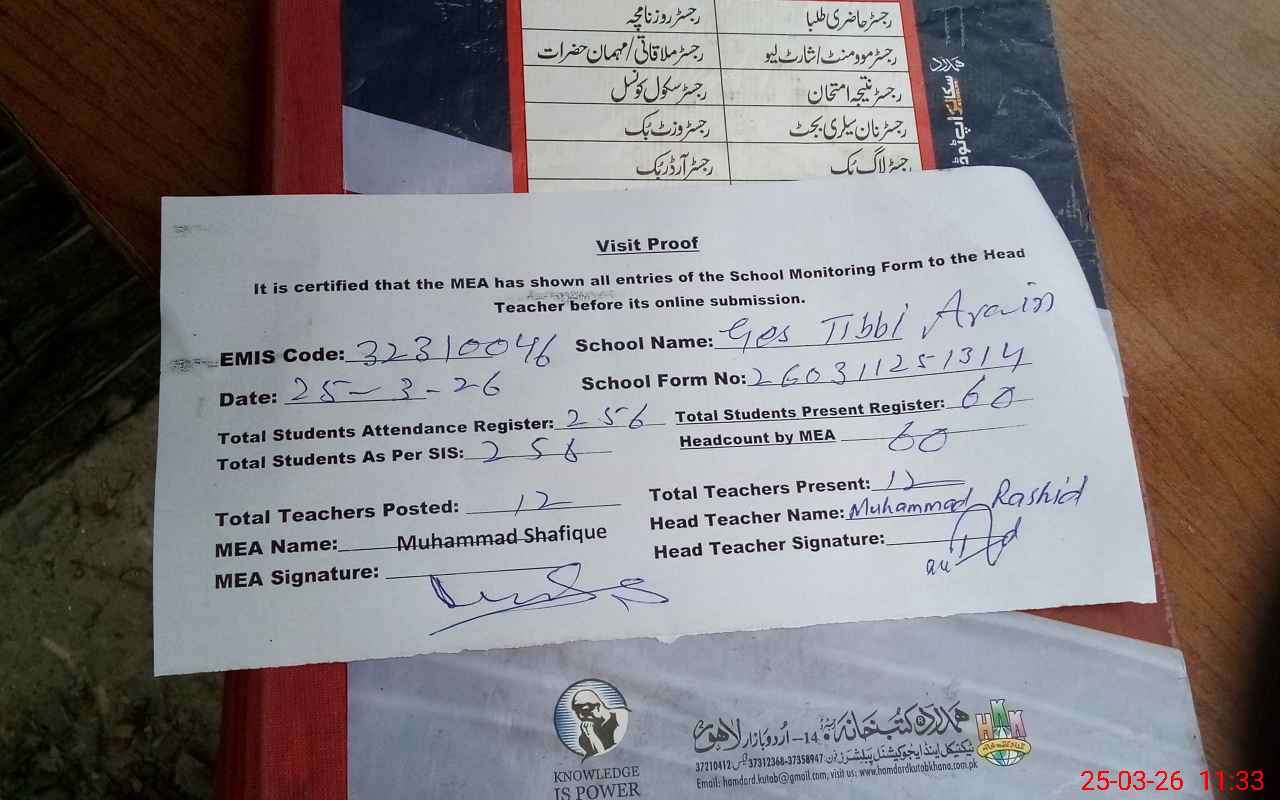 رجسٹر حاضری طلبا رجسٹر روزنامچہ
رجسٹر موومنٹ/شارٹ لیو رجسٹر ملاقاتی/مہمان حضرات
رجسٹر نتیجہ امتحان رجسٹر سکول کونسل
رجسٹر نان سیلری بجٹ رجسٹر وزٹ بک
رجسٹر لاگ بک رجسٹر آرڈر بک
ہمدرد
Visit Proof
It is certified that the MEA has shown all entries of the School Monitoring Form to the Head
Teacher before its online submission.
EMIS Code: 32310046 School Name: Ges Tibbi Arain
Date: 25-3-26 School Form No: 260311251314
Total Students Attendance Register: 256 Total Students Present Register: 60
Total Students As Per SIS: 256 Headcount by MEA 60
Total Teachers Posted: 12 Total Teachers Present: 12
MEA Name: Muhammad Shafique Head Teacher Name: Muhammad Rashid
MEA Signature: Head Teacher Signature:
KNOWLEDGE
IS POWER
ہمدرد کتب خانہ 14-اُردو بازار لاہور
ٹیکنیکل اینڈ ایجوکیشنل پبلشرز فون 37312368-37358947 فیکس 37210412
Email: hamdard.kutab@gmail.com, visit us: www.hamdardkutabkhana.com.pk
HKK
25-03-26 11:33